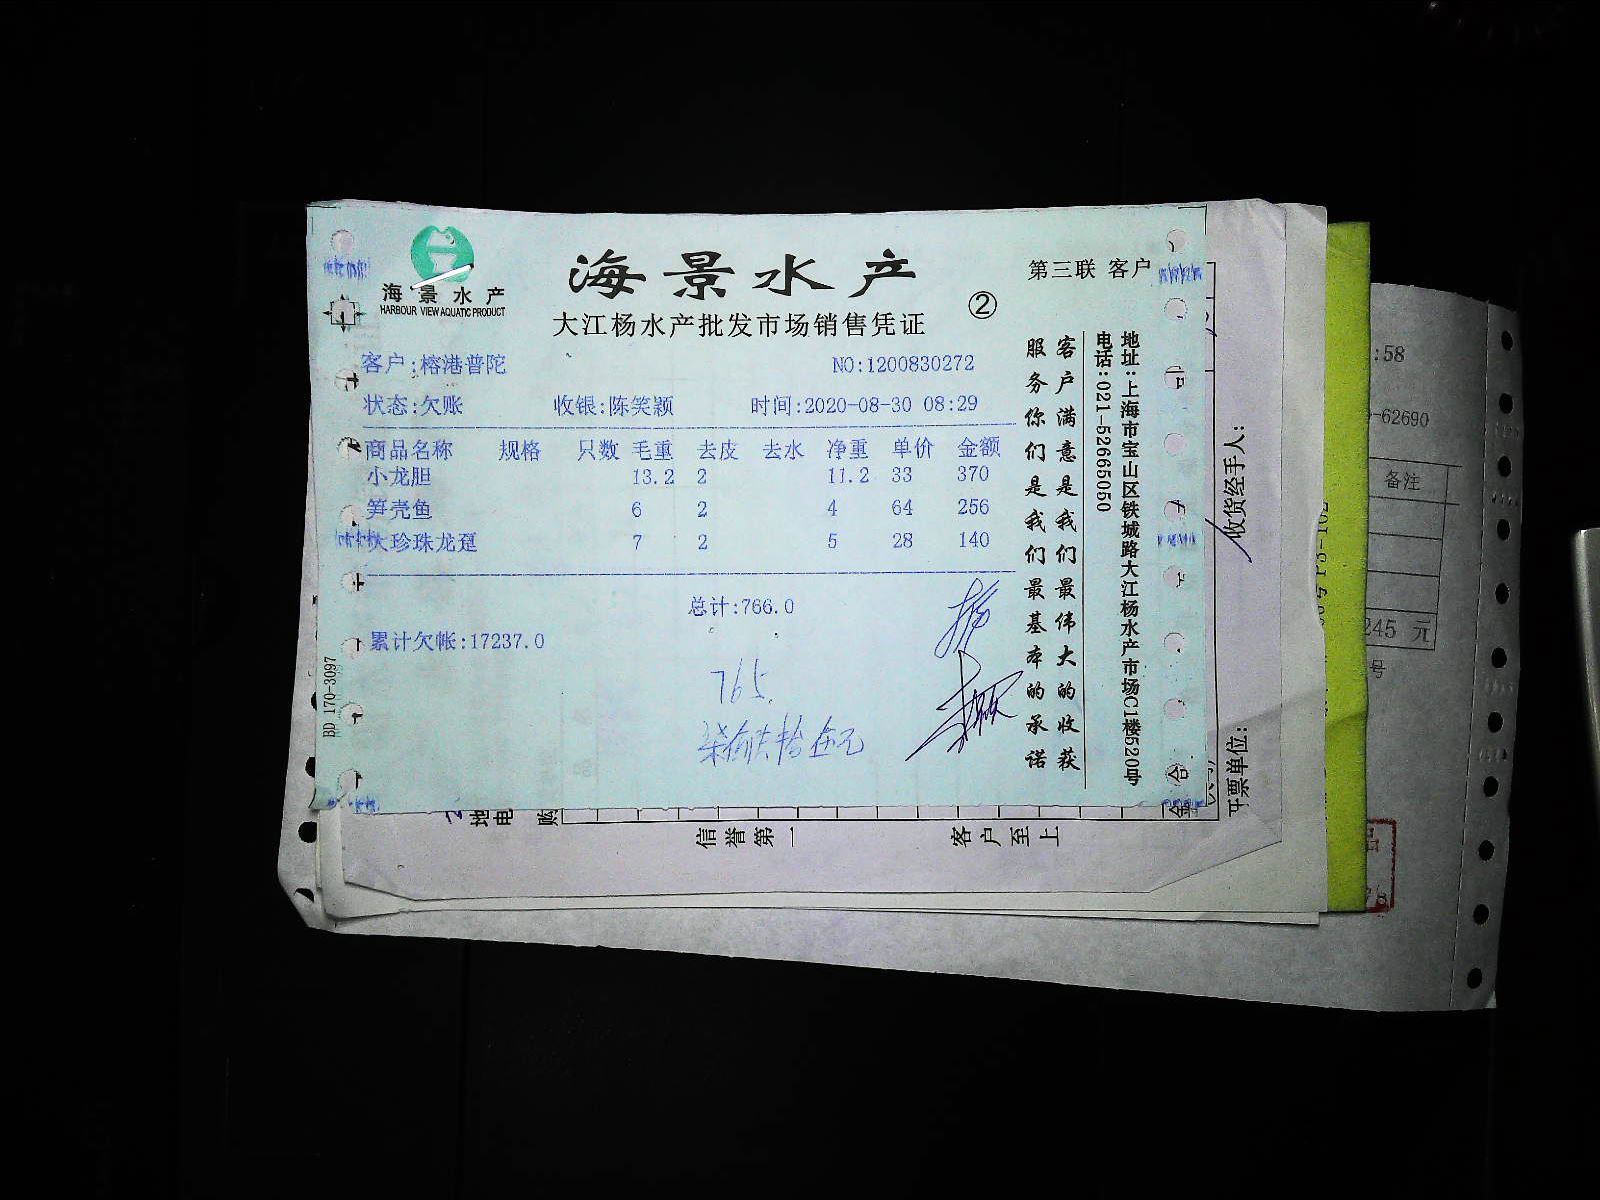 海景水产
HARBOUR VIEW AQUATIC PRODUCT
海景水产
大江杨水产批发市场销售凭证
②
第三联 客户
客户:榕港普陀 NO:1200830272
状态:欠账 收银:陈笑颖 时间:2020-08-30 08:29
商品名称 规格 只数 毛重 去皮 去水 净重 单价 金额
小龙胆 13.2 2 11.2 33 370
笋壳鱼 6 2 4 64 256
大珍珠龙趸 7 2 5 28 140
总计:766.0
累计欠帐:17237.0
765.
柒佰陆拾伍元
客户满意是我们最伟大的收获
服务你们是我们最基本的承诺
地址:上海市宝山区铁城路大江杨水产市场C1楼520号
电话:021-52665050
BD 170-3097
收货经手人:
开票单位:
地
电
购
信誉第一
客户至上
合
金
:58
-62690
备注
245 元
号